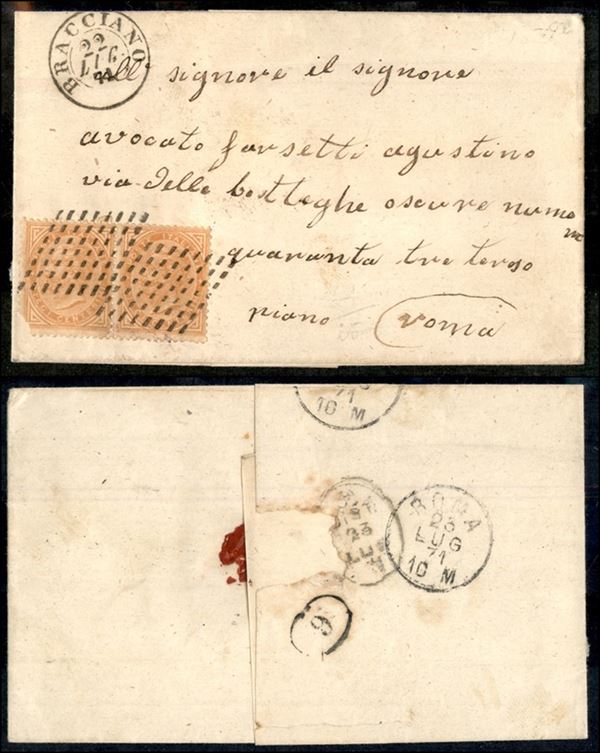 BRACCIANO
22
LUG
71
All' signore il signore
avocato farsetti agustino
via delle bostteghe oscure numo
quaranta tre terso
piano roma
71
10 M
23
LUG
ROMA
23
LUG
71
10 M